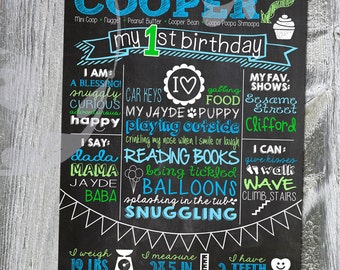 COOPER
Mini Coop • Nugget • Peanut Butter • Cooper Bean • Coopa Poopa Shmoopa
my 1st birthday
I AM:
A BLESSING!
snuggly
CURIOUS
happy
I SAY:
dada
MAMA
JAYDE
BABA
I ♥
CAR KEYS
eating
FOOD
MY JAYDE PUPPY
playing outside
Crinkling my nose when I smile or laugh
READING BOOKS
being tickled
BALLOONS
splashing in the tub
SNUGGLING
MY FAV.
SHOWS:
Sesame
Street
Clifford
I CAN:
give kisses
walk
WAVE
CLIMB STAIRS
I weigh
I measure
28.5 IN
I have
2 TEETH